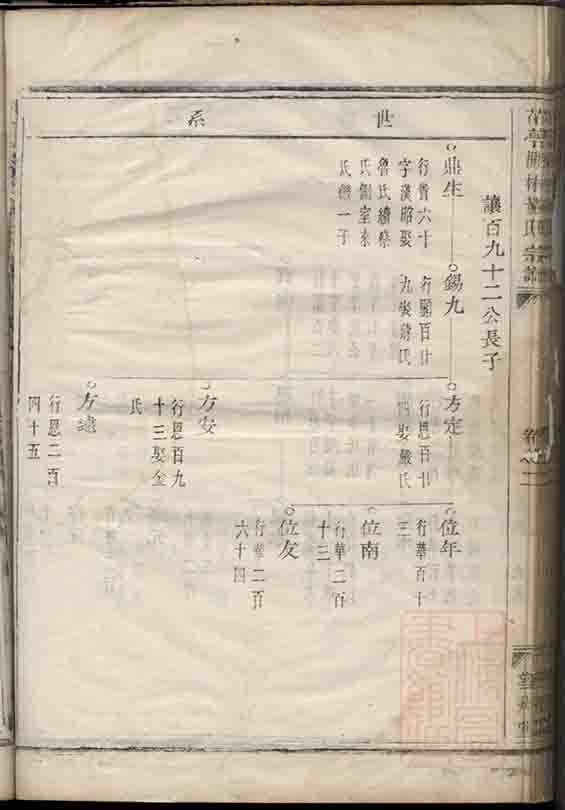 世系
讓百九十二公長子
鼎生
行貴六十
字漢昭娶
魯氏續蔡
氏側室來
氏繼一子
錫九
行顯百廿
九娶蔣氏
方定
行恩百
四娶嚴氏
位年
行華百十
三
位南
行華二百
十三
位友
行華二百
六十四
方安
行恩百九
十三娶金
氏
方遠
行恩二百
四十五
氏宗譜
卷